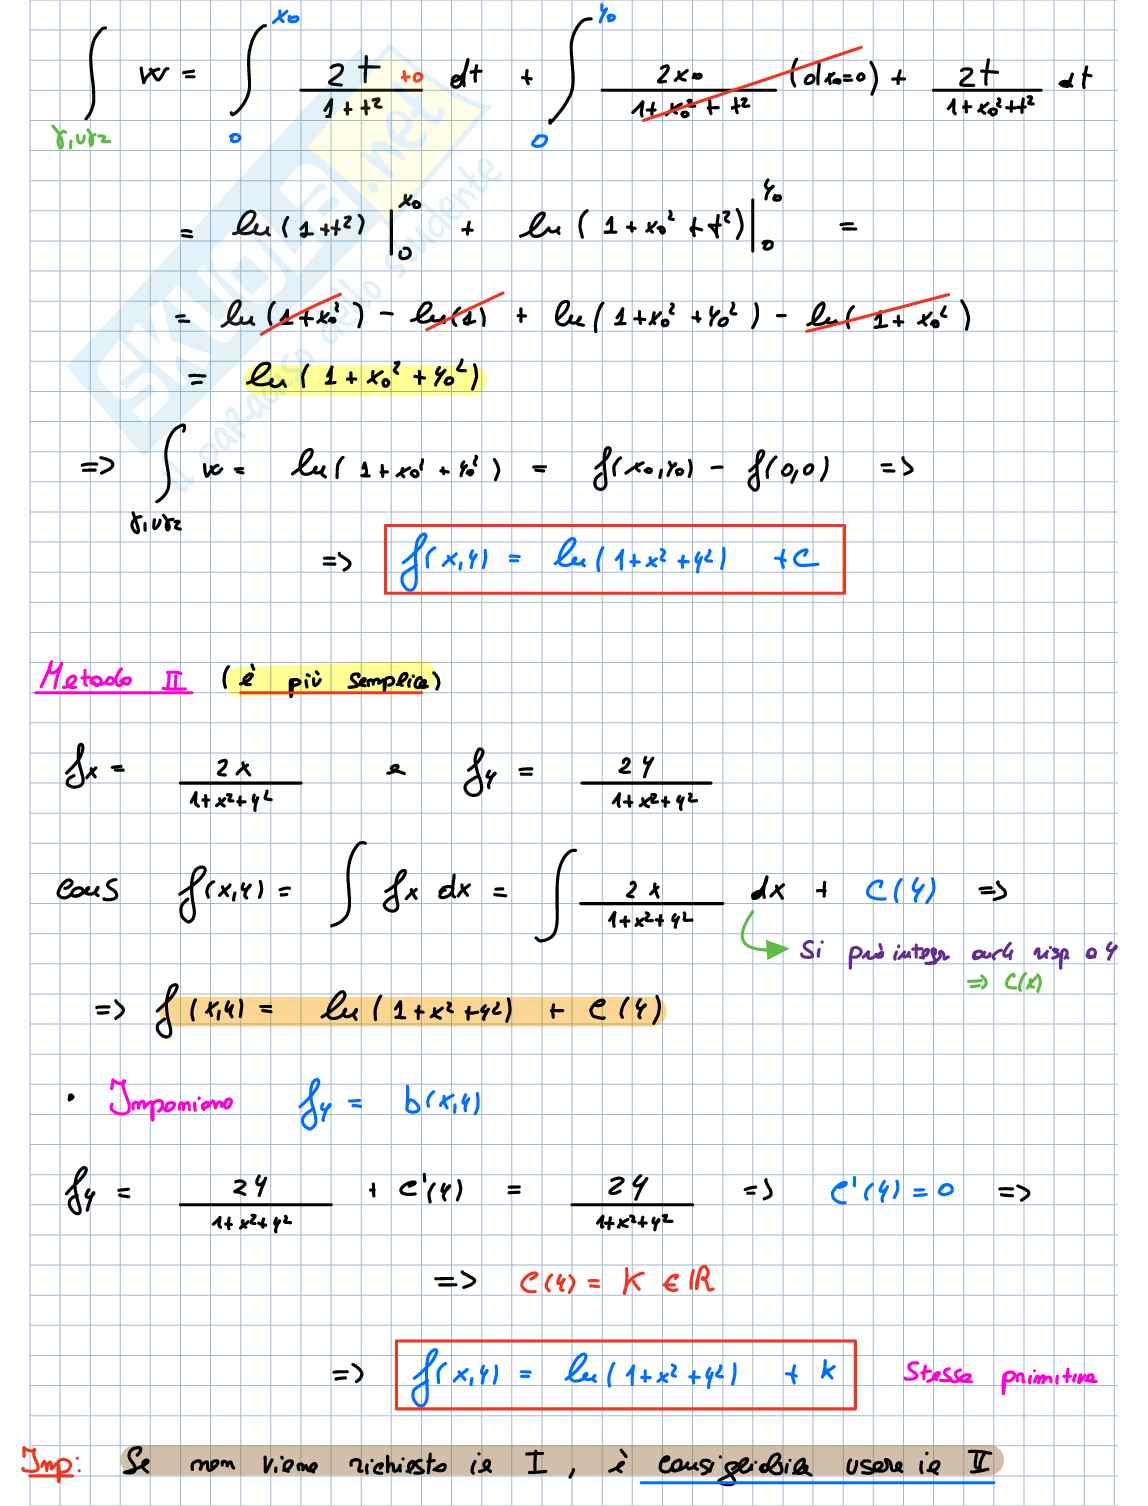 ∫_{γ₁∪γ₂} w = ∫_0^{x₀} (2t+0)/(1+t²) dt + ∫_0^{y₀} 2x₀/(1+x₀²+t²) (dx₀=0) + 2t/(1+x₀²+t²) dt
= ln(1+t²)|_0^{x₀} + ln(1+x₀²+t²)|_0^{y₀} =
= ln(1+x₀²) - ln(1) + ln(1+x₀²+y₀²) - ln(1+x₀²)
= ln(1+x₀²+y₀²)
=> ∫_{γ₁∪γ₂} w = ln(1+x₀²+y₀²) = f(x₀,y₀) - f(0,0) =>
=> f(x,y) = ln(1+x²+y²) + C
Metodo II (è più semplice)
fx = 2x/(1+x²+y²) e fy = 2y/(1+x²+y²)
cons f(x,y) = ∫ fx dx = ∫ 2x/(1+x²+y²) dx + C(y) =>
Si può integr anch risp a y
=> C(x)
=> f(x,y) = ln(1+x²+y²) + C(y)
• Imponiamo fy = b(x,y)
fy = 2y/(1+x²+y²) + C'(y) = 2y/(1+x²+y²) => C'(y) = 0 =>
=> C(y) = K ∈ ℝ
=> f(x,y) = ln(1+x²+y²) + K Stessa primitiva
Imp: Se non viene richiesto il I, è consigliabile usare il II
SKUOLA.net
il paradiso dello studente